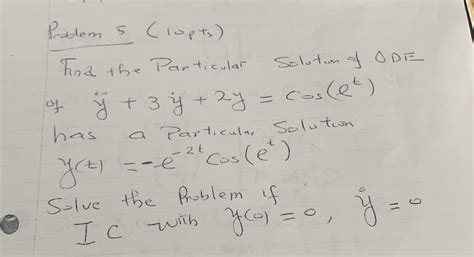 Problem 5 (10pts)
Find the Particular Solution of ODE
of ÿ + 3ẏ + 2y = Cos(e^t)
has a Particular Solution
y(t) = -e^{-2t} Cos(e^t)
Solve the Problem if
IC with y(0) = 0, ẏ = 0